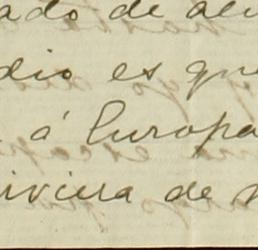 ado de
dio es que
á Europa
iviera de